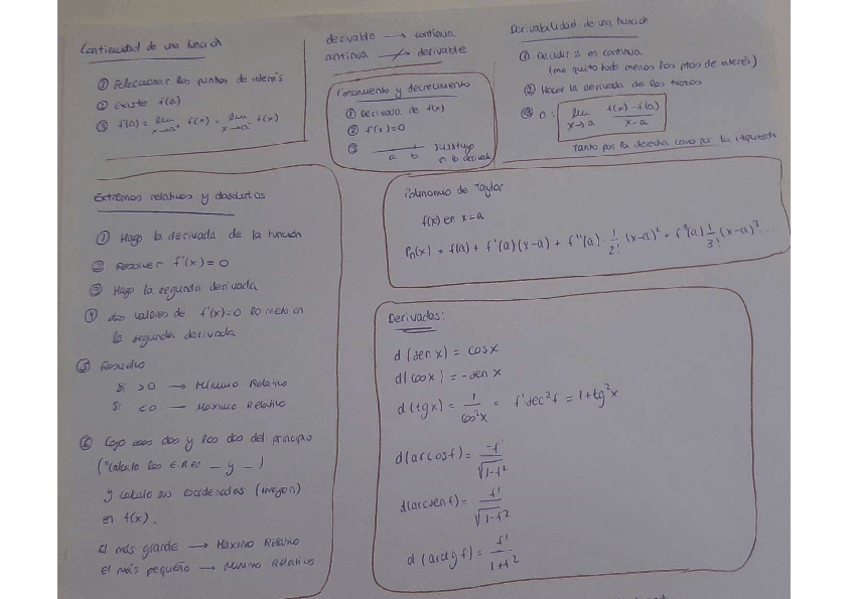 Continuidad de una función
① Seleccionar los puntos de interés
② Existe f(a)
③ f(a) = lim x→a⁺ f(x) = lim x→a⁻ f(x)
derivable → continua
continua ↛ derivable
Crecimiento y decrecimiento
① Derivada de f(x)
② f'(x)=0
③ a b sustituyo en la derivada
Derivabilidad de una función
① Decidir si es continua
(me quito todo menos los ptos de interés)
② Hacer la derivada de los trozos
③ O: lim x→a f(x)-f(a) / x-a
Tanto por la derecha como por la izquierda
Extremos relativos y absolutos
① Hago la derivada de la función
② Resolver f'(x)=0
③ Hago la segunda derivada
④ Los valores de f'(x)=0 lo meto en
la segunda derivada
⑤ Resuelvo
Si >0 → Mínimo Relativo
Si <0 → Máximo Relativo
⑥ Cojo esos dos y los dos del principio
("Calcula los E.R en _ y _)
y calculo sus coordenadas (imagen)
en f(x).
El más grande → Máximo Relativo
El más pequeño → Mínimo Relativo
Polinomio de Taylor
f(x) en x=a
Pn(x) = f(a) + f'(a)(x-a) + f''(a)·1/2! (x-a)² + f'''(a) 1/3! (x-a)³...
Derivadas:
d(sen x) = cos x
d(cos x) = -sen x
d(tg x) = 1/cos²x = f' sec² f = 1+tg²x
d(arcos f) = -f'/√1-f²
d(arcsen f) = f'/√1-f²
d(arctg f) = f'/1+f²